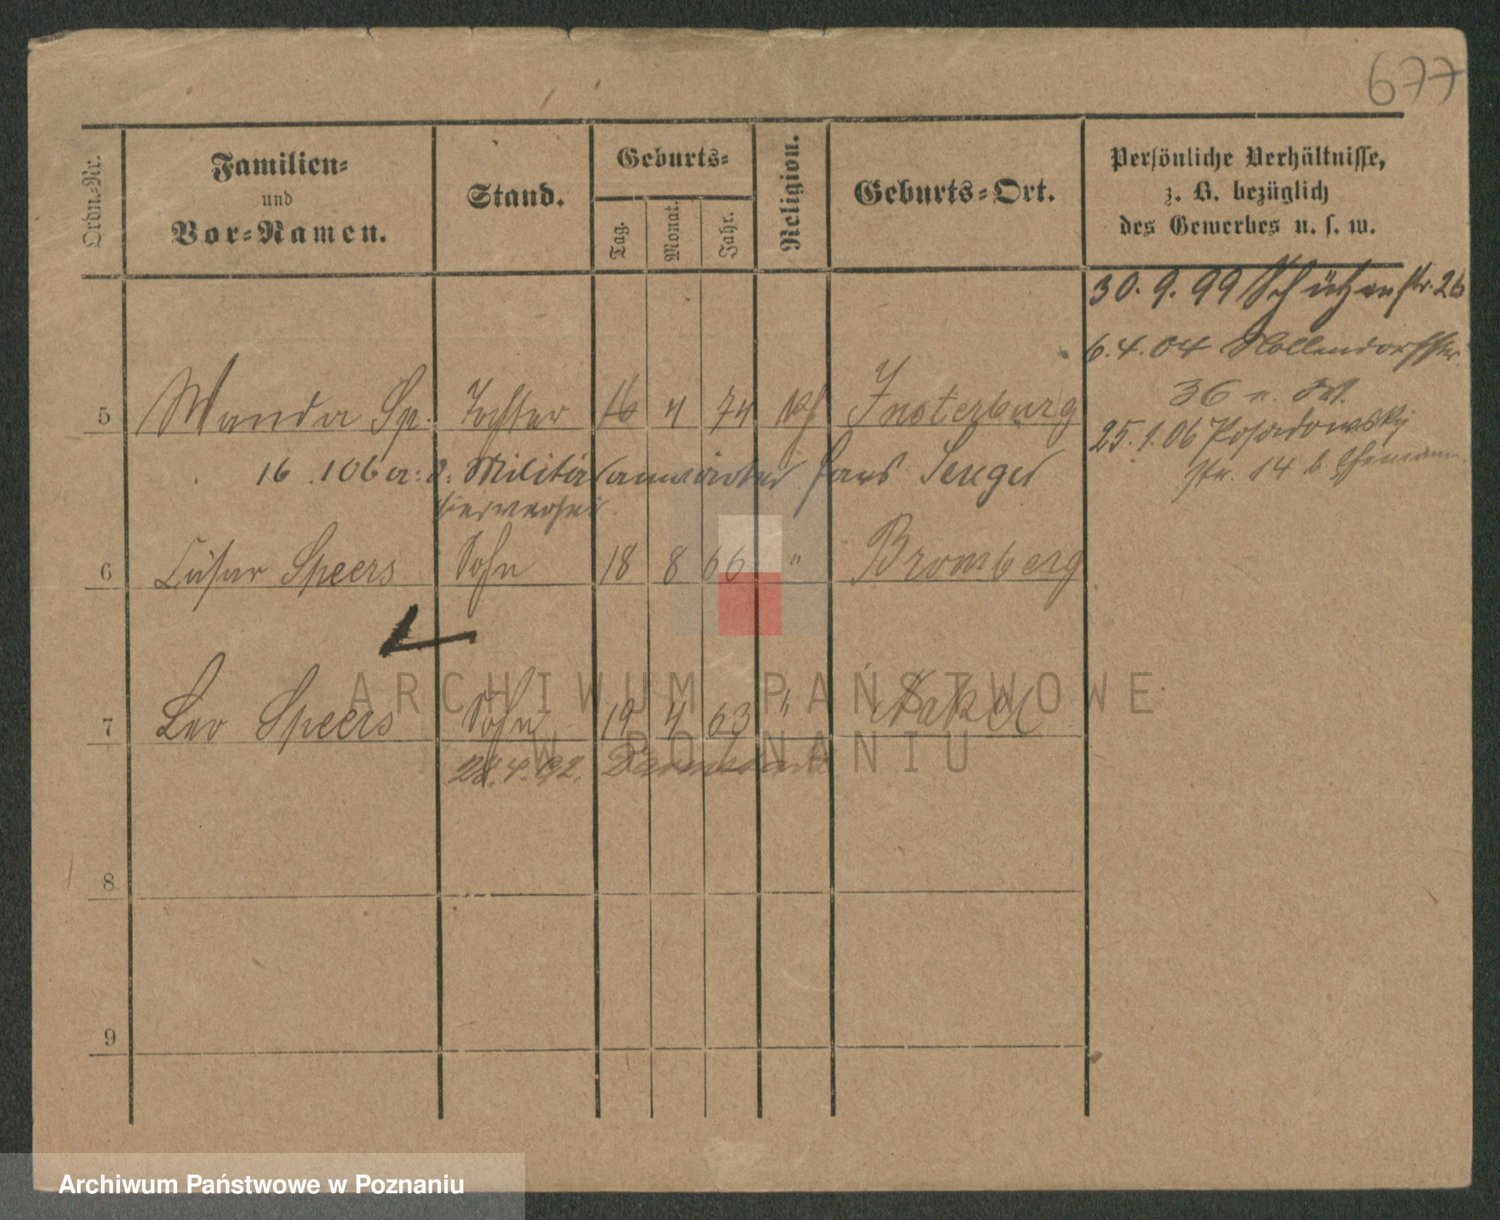 677
Ordn.-Nr.
Familien-
und
Vor-Namen.
Stand.
Geburts-
Tag.
Monat.
Jahr.
Religion.
Geburts-Ort.
Persönliche Verhältnisse,
z. B. bezüglich
des Gewerbes u. s. w.
30. 9. 99 Schützenstr. 26
6. 4. 04 Nollendorffstr.
36
5 Wanda Sp. Tochter 16 4 74 Insterburg
25. 1. 06 Posadowsky
str. 14 b.
16 . 106 a: d: Militäranwärter Hans
6 Cäsar Speers Sohn 18 8 66 " Bromberg
7 Leo Speers Sohn 19 4 63 " Nakel
28. 4. 92.
8
9
ARCHIWUM PAŃSTWOWE
W POZNANIU
Archiwum Państwowe w Poznaniu